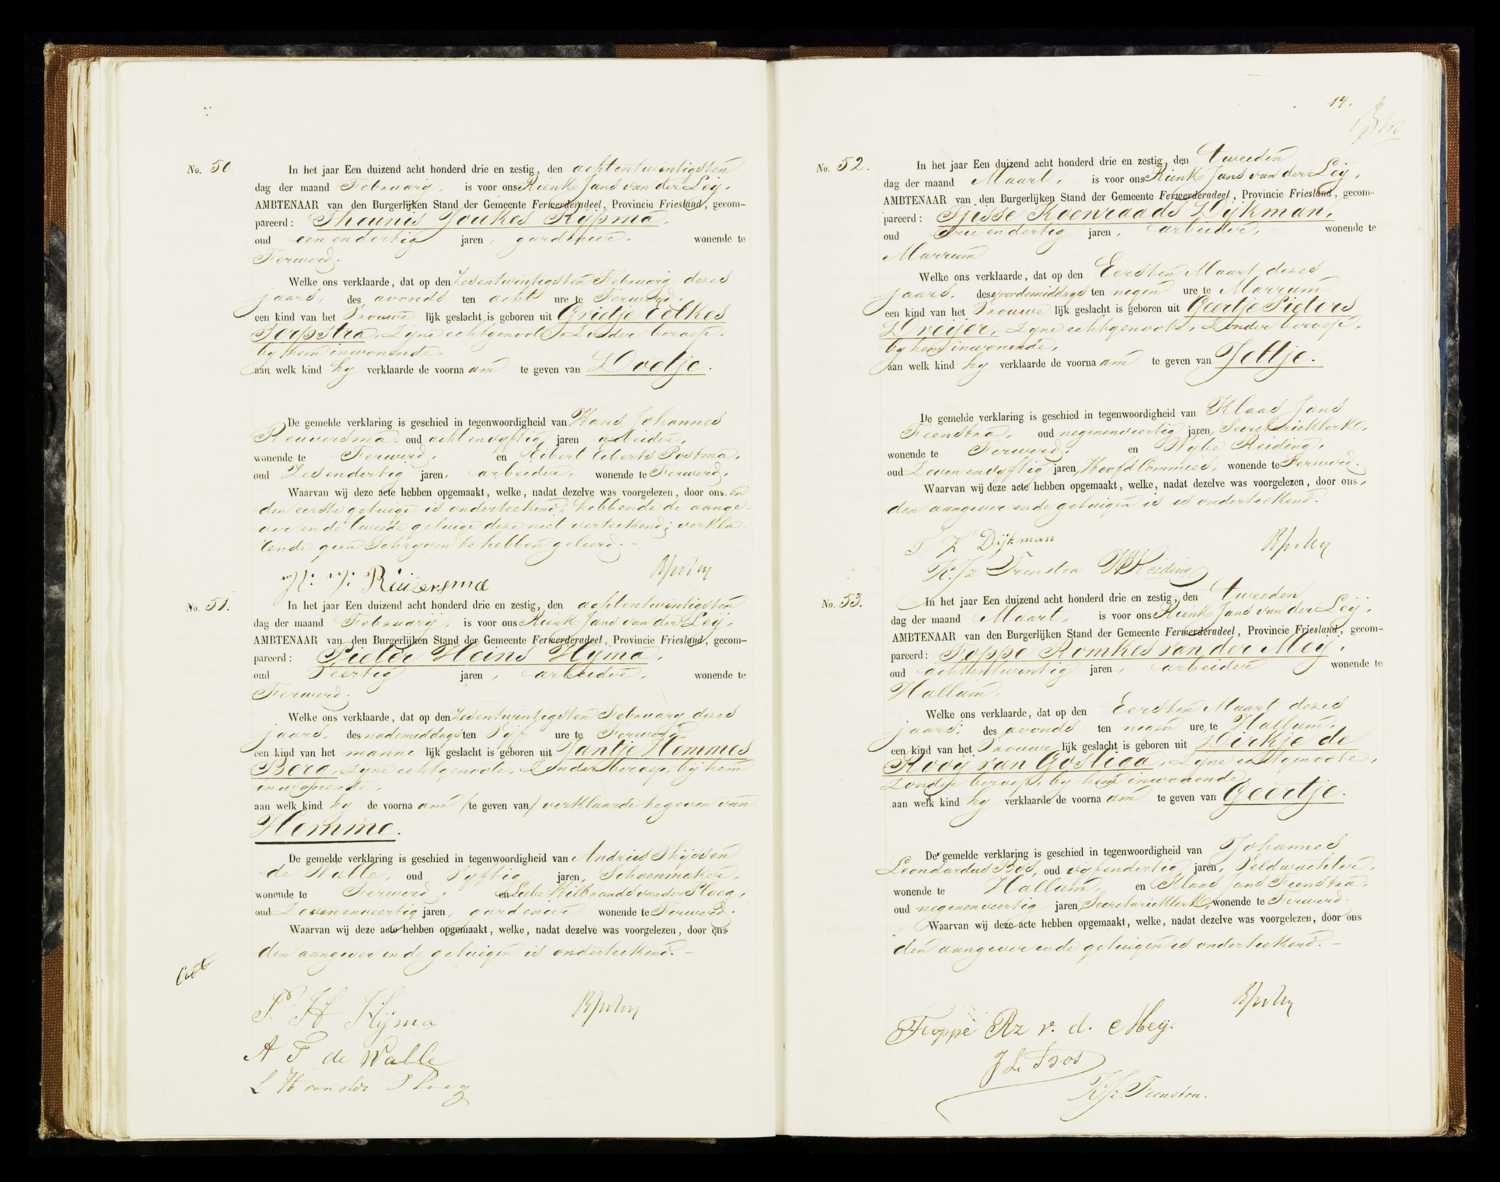 No. 50
In het jaar Een duizend acht honderd drie en zestig, den achtentwintigsten
dag der maand February, is voor ons Rienk Jans van der Leij,
AMBTENAAR van den Burgerlijken Stand der Gemeente Ferwerderadeel, Provincie Friesland, gecom-
pareerd: Theunis Joukes Kijpma,
oud een en dertig jaren, gardenier, wonende te
Ferwerd.
Welke ons verklaarde, dat op den Zesentwintigsten February dezes
jaars, des avonds ten acht ure te Ferwerd,
een kind van het Vrouwelijk geslacht is geboren uit Grietje Folkes
Terpstra, Zyne echtgenoote, Zonder beroep,
by hem inwonende,
aan welk kind hy verklaarde de voornaam te geven van Doetje.
De gemelde verklaring is geschied in tegenwoordigheid van Hans Johannes
Reuversma oud achtenvyftig jaren arbeider,
wonende te Ferwerd, en Eibert Eiberts Postma,
oud Zesendertig jaren, arbeider, wonende te Ferwerd.
Waarvan wij deze acte hebben opgemaakt, welke, nadat dezelve was voorgelezen, door ons en
den eersten getuige is onderteekend; hebbende de aange-
ver en de tweede getuige deze niet verteekend; verkla-
rende geen Schryven te hebben geleerd.
H: J: Reuversma
No. 51.
In het jaar Een duizend acht honderd drie en zestig, den achtentwintigsten
dag der maand February, is voor ons Rienk Jans van der Leij,
AMBTENAAR van den Burgerlijken Stand der Gemeente Ferwerderadeel, Provincie Friesland, gecom-
pareerd: Pieter Heins Hijma,
oud Veertig jaren, arbeider, wonende te
Ferwerd.
Welke ons verklaarde, dat op den Zesentwintigsten February dezes
jaars, des nademiddags ten Vyf ure te Ferwerd
een kind van het mannelijk geslacht is geboren uit Jantje Hemmes
Berg, Zyne echtgenoote, Zonder beroep, by hem
inwonende,
aan welk kind hy de voornaam (te geven van) verklaarde te geven van
Hemme.
De gemelde verklaring is geschied in tegenwoordigheid van Andries Thijssen
de Walle, oud Vyftig jaren, Schoenmaker,
wonende te Ferwerd, en Lube Wilbrands van der Ploeg,
oud Zevenenveertig jaren, gardenier wonende te Ferwerd.
Waarvan wij deze acte hebben opgemaakt, welke, nadat dezelve was voorgelezen, door ons
den aangever en de getuigen is onderteekend.
P. H Hijma
A T de Walle
L W van der Ploeg
14.
No. 52.
In het jaar Een duizend acht honderd drie en zestig, den tweeden
dag der maand Maart, is voor ons Rienk Jans van der Leij,
AMBTENAAR van den Burgerlijken Stand der Gemeente Ferwerderadeel, Provincie Friesland, gecom-
pareerd: Tjisse Koenraads Dijkman,
oud Drie en dertig jaren, arbeider, wonende te
Marrum
Welke ons verklaarde, dat op den Eersten Maart dezes
jaars, des voordemiddags ten negen ure te Marrum
een kind van het Vrouwelijk geslacht is geboren uit Geertje Pieters
Dreijer, Zyne echtgenoote, Zonder beroep,
by hem inwonende,
aan welk kind hy verklaarde de voornaam te geven van Jeltje.
De gemelde verklaring is geschied in tegenwoordigheid van Klaas Jans
Feenstra, oud negenenveertig jaren, Secretarieklerk,
wonende te Ferwerd, en Wytse Reiding,
oud Zevenenvyftig jaren, Hoofd Commies, wonende te Ferwerd.
Waarvan wij deze acte hebben opgemaakt, welke, nadat dezelve was voorgelezen, door ons,
den aangever en de getuigen is onderteekend.
T K Dijkman
K: Js Feenstra W Reiding
No. 53.
In het jaar Een duizend acht honderd drie en zestig, den tweeden
dag der maand Maart, is voor ons Rienk Jans van der Leij,
AMBTENAAR van den Burgerlijken Stand der Gemeente Ferwerderadeel, Provincie Friesland, gecom-
pareerd: Foppe Romkes van der Meij,
oud achtentwintig jaren, arbeider wonende te
Hallum.
Welke ons verklaarde, dat op den Eersten Maart dezes
jaars, des avonds ten negen ure te Hallum,
een kind van het Vrouwelijk geslacht is geboren uit Dirkje de
Rooij van Gosliga, Zyne echtgenoote,
Zonder beroep, by hem inwonende,
aan welk kind hy verklaarde de voornaam te geven van Geertje.
De gemelde verklaring is geschied in tegenwoordigheid van Johannes
Leonardus Bos, oud vyfendertig jaren, Veldwachter,
wonende te Hallum, en Klaas Jans Feenstra,
oud negenenveertig jaren, Secretarieklerk, wonende te Ferwerd.
Waarvan wij deze acte hebben opgemaakt, welke, nadat dezelve was voorgelezen, door ons
den aangever en de getuigen is onderteekend.
Foppe Rz v. d. Meij.
J L Bos
K: Js Feenstra.